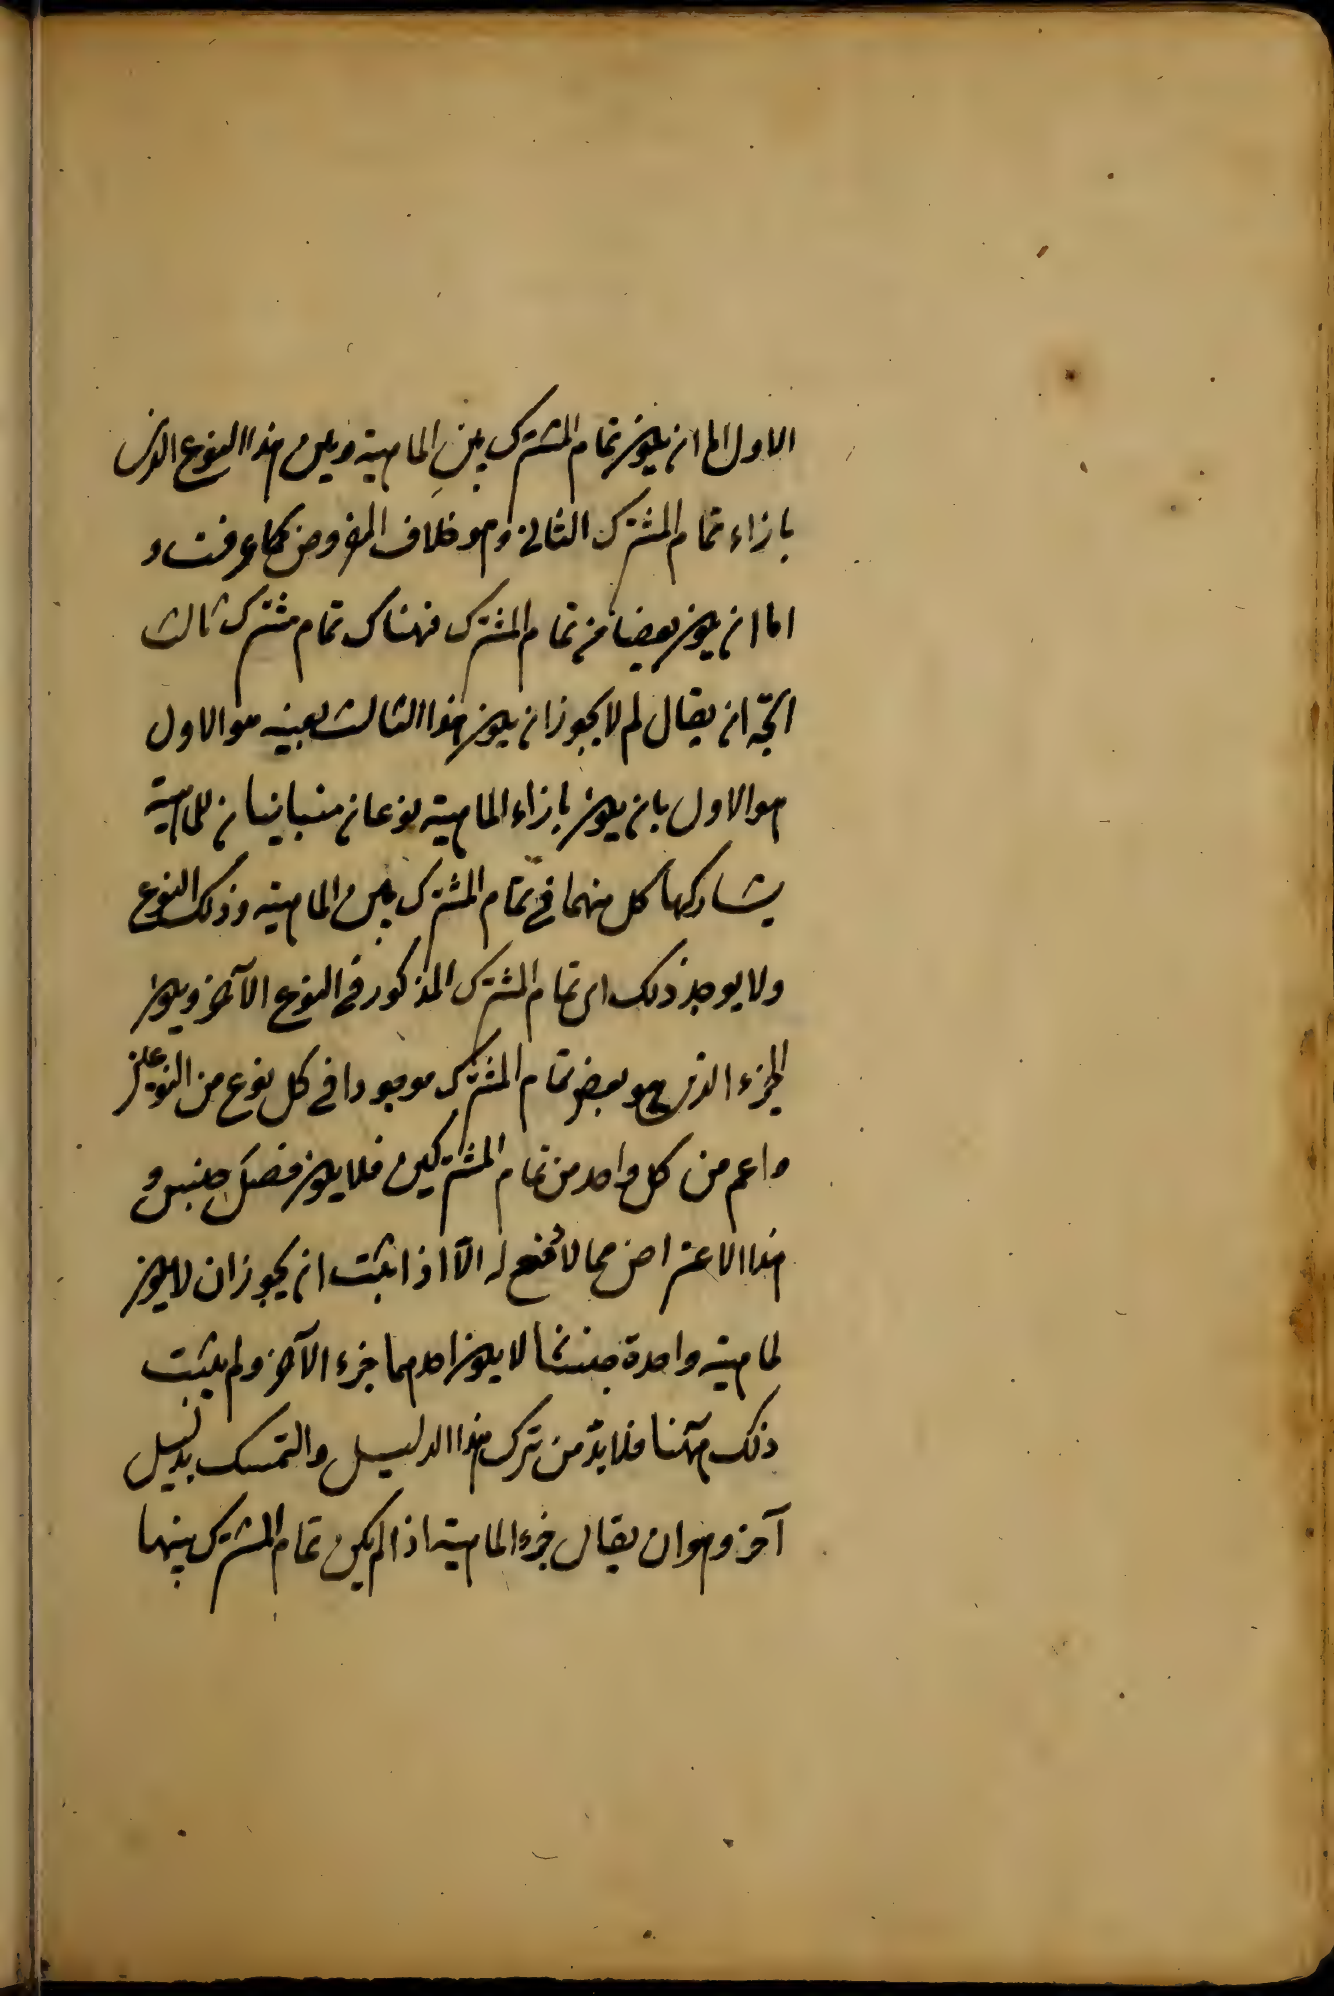 الاول اما ان يكون تمام المشترك بين الماهية وبين هذا النوع الذى
بازاء تمام المشترك الثانى وهو خلاف المفروض كما عرفت و
اما ان يكون بعضا من تمام المشترك فهناك تمام مشترك ثالث
اتجه ان يقال لم لا يجوز ان يكون هذا الثالث بعينه هو الاول
هو الاول بان يكون بازاء الماهية نوعان متباينان للماهية
يشاركها كل منهما فى تمام المشترك بين الماهية وذلك النوع
ولا يوجد ذلك اى تمام المشترك المذكور فى النوع الآخر ويكون
الجزء الذى هو بعض تمام المشترك موجودا فى كل نوع من النوعين
واعم من كل واحد من تمام المشتركين فلا يكون فصل جنس و
هذا الاعتراض مما لا مدفع له الا اذا ثبت ان يجوز ان لا يكون
لماهية واحدة جنسان لا يكون احدهما جزء الآخر ولم يثبت
ذلك ههنا فلا بد من ترك هذا الدليل والتمسك بدليل
آخر وهو ان يقال جزء الماهية اذا لم يكن تمام المشترك بينها